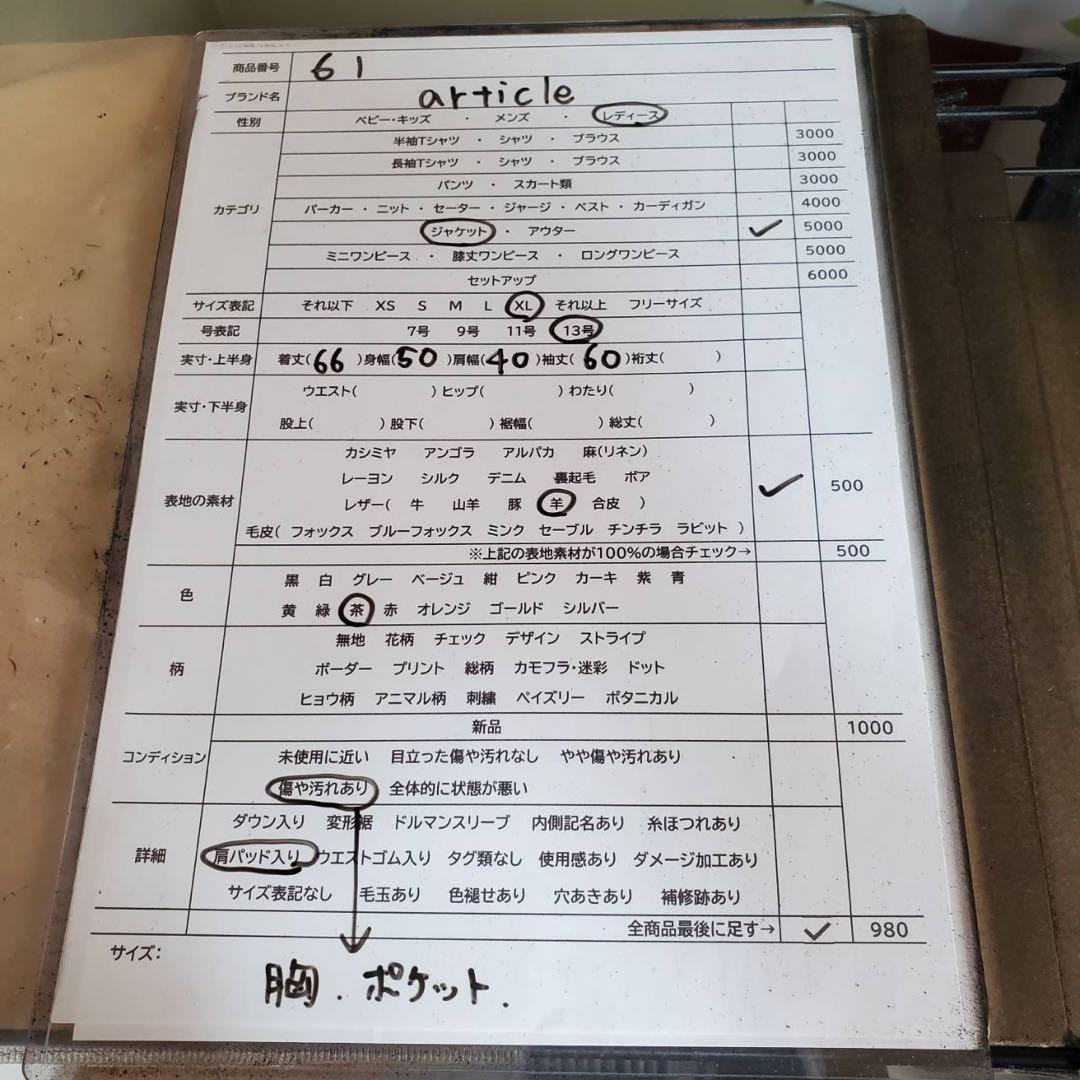 商品番号 61
ブランド名 article
性別 ベビー・キッズ ・ メンズ ・ レディース
半袖Tシャツ ・ シャツ ・ ブラウス 3000
長袖Tシャツ ・ シャツ ・ ブラウス 3000
パンツ ・ スカート類 3000
カテゴリ パーカー ・ ニット ・ セーター ・ ジャージ ・ ベスト ・ カーディガン 4000
ジャケット ・ アウター ✓ 5000
ミニワンピース ・ 膝丈ワンピース ・ ロングワンピース 5000
セットアップ 6000
サイズ表記 それ以下 XS S M L XL それ以上 フリーサイズ
号表記 7号 9号 11号 13号
実寸・上半身 着丈(66)身幅(50)肩幅(40)袖丈(60)裄丈( )
実寸・下半身 ウエスト( )ヒップ( )わたり( )
股上( )股下( )裾幅( )総丈( )
カシミヤ アンゴラ アルパカ 麻(リネン)
レーヨン シルク デニム 裏起毛 ボア
表地の素材 レザー( 牛 山羊 豚 羊 合皮 ) ✓ 500
毛皮( フォックス ブルーフォックス ミンク セーブル チンチラ ラビット )
※上記の表地素材が100%の場合チェック→ 500
色 黒 白 グレー ベージュ 紺 ピンク カーキ 紫 青
黄 緑 茶 赤 オレンジ ゴールド シルバー
無地 花柄 チェック デザイン ストライプ
柄 ボーダー プリント 総柄 カモフラ・迷彩 ドット
ヒョウ柄 アニマル柄 刺繍 ペイズリー ボタニカル
新品 1000
コンディション 未使用に近い 目立った傷や汚れなし やや傷や汚れあり
傷や汚れあり 全体的に状態が悪い
ダウン入り 変形裾 ドルマンスリーブ 内側記名あり 糸ほつれあり
詳細 肩パッド入り ウエストゴム入り タグ類なし 使用感あり ダメージ加工あり
サイズ表記なし 毛玉あり 色褪せあり 穴あきあり 補修跡あり
全商品最後に足す→ ✓ 980
サイズ：
胸．ポケット．